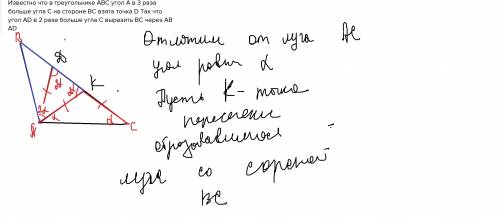 Известно что в треугольнике ABC угол А в 3 раза
больше угла С на стороне ВС взята точка D Так что
угол AD в 2 раза больше угла С выразить ВС через АВ
AD
B
D
K
2α
2α
2α
α
α
A
C
Отложим от луга AC
угол равен α
Пусть K - точка
пересечени
образовавшегося
луга со стороной
BC